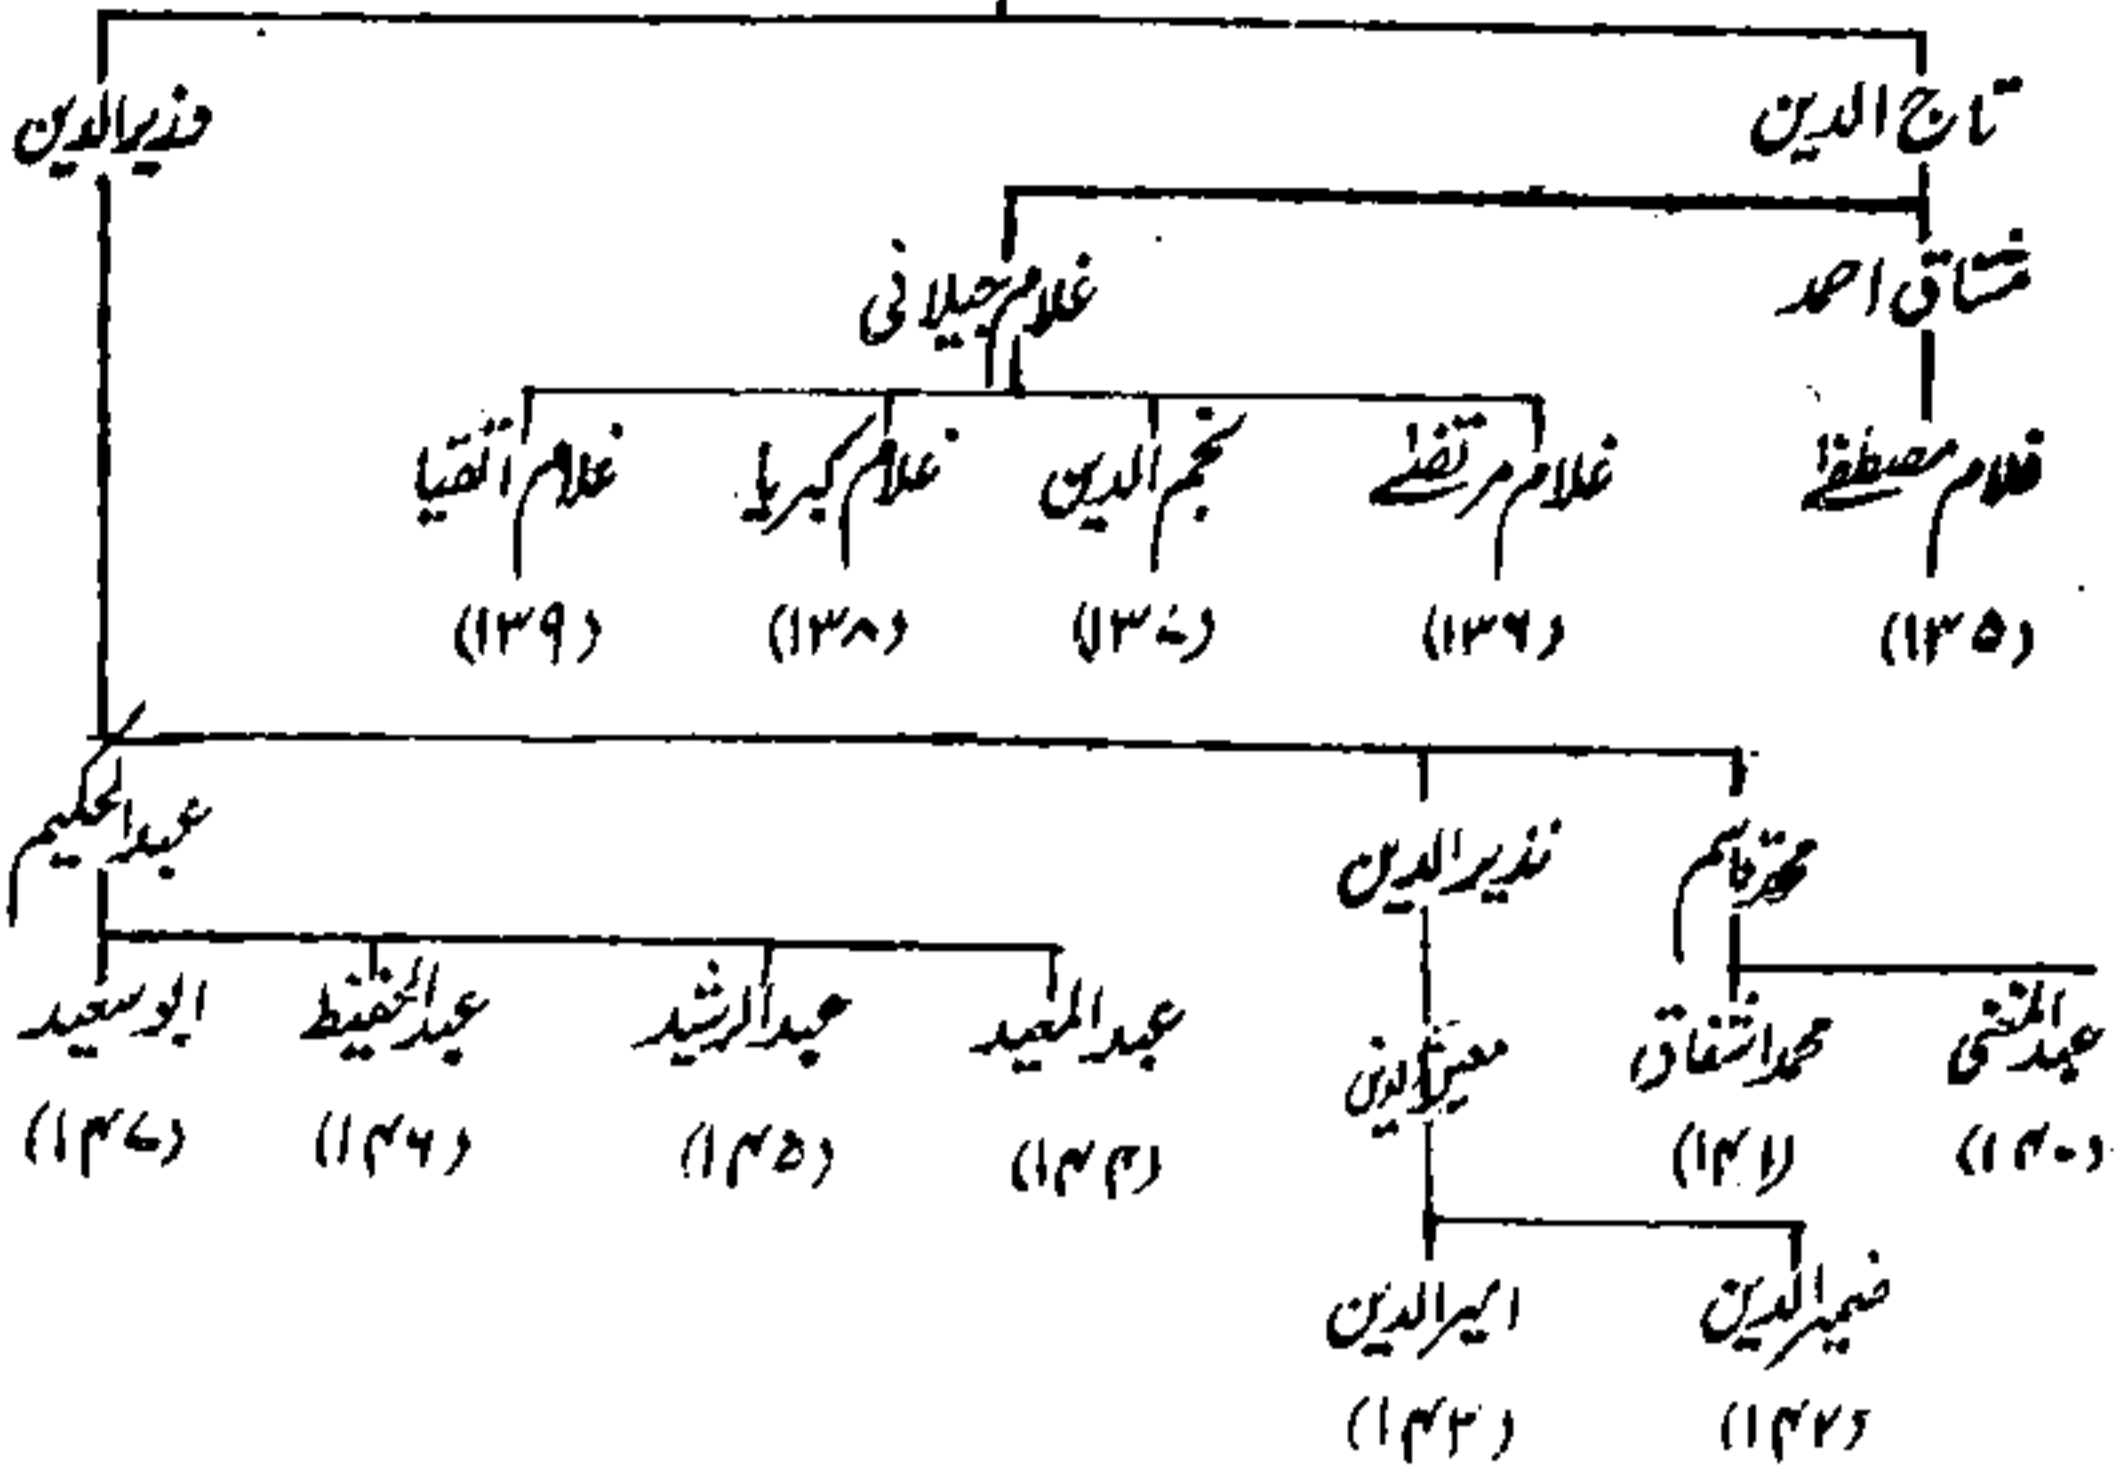 تاج الدین وزیرالدین
مشتاق احمد غلام جیلانی
غلام مصطفےٰ غلام مرتضےٰ نجم الدین غلام کبریا غلام اتقیا
(۱۳۵) (۱۳۶) (۱۳۷) (۱۳۸) (۱۳۹)
محمد قاسم نذیرالدین عبدالحکیم
عبدالمغنی محمد اشفاق معین الدین عبدالمعید عبدالرشید عبدالحفیظ ابوسعید
(۱۴۰) (۱۴۱) (۱۴۴) (۱۴۵) (۱۴۶) (۱۴۷)
ضمیرالدین امیرالدین
(۱۴۲) (۱۴۳)